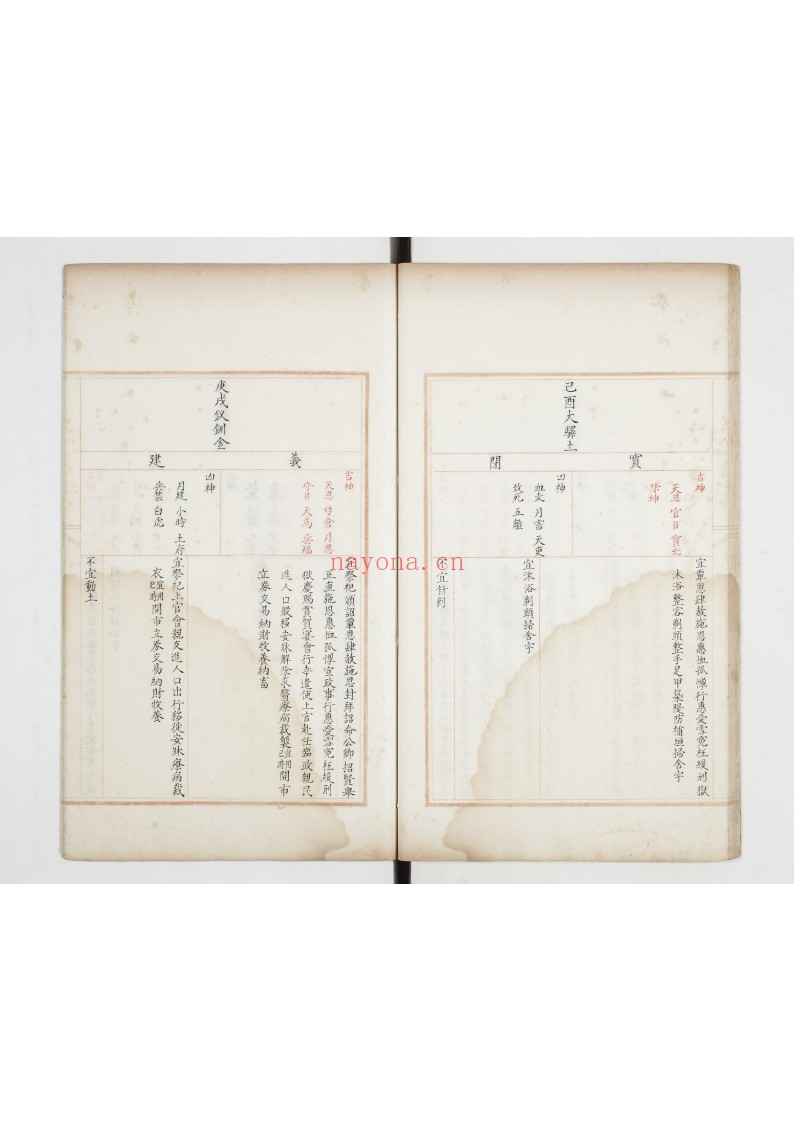 己酉大驛土
寳
閉
吉神
天恩 官日
除神
宜覃恩肆赦施恩惠恤孤惸行惠愛雪寃枉緩刑獄
沐浴整容剃頭整手足甲築隄防補垣掃舍宇
凶神
血支 月害 天吏
致死 五離
宜沐浴剃頭掃舍宇
不宜針刺
庚戌釵釧金
義
建
吉神
天恩 母倉 月恩
守日 天馬 兵福
宜祭祀頒詔覃恩肆赦施恩封拜詔命公卿招賢舉
正直施恩惠恤孤惸宣政事行惠愛雪寃枉緩刑
獄慶賜賞賀宴會行幸遣使上官赴任臨政親民
進人口般移安牀解除求醫療病裁製宜用巳時開市
立券交易納財牧養納畜
凶神
月建 小時 土府
兵禁 白虎
宜祭祀上官會親友進人口出行移徙安牀療病裁
衣宜用巳時開市立券交易納財牧養
不宜動土
nayona.cn